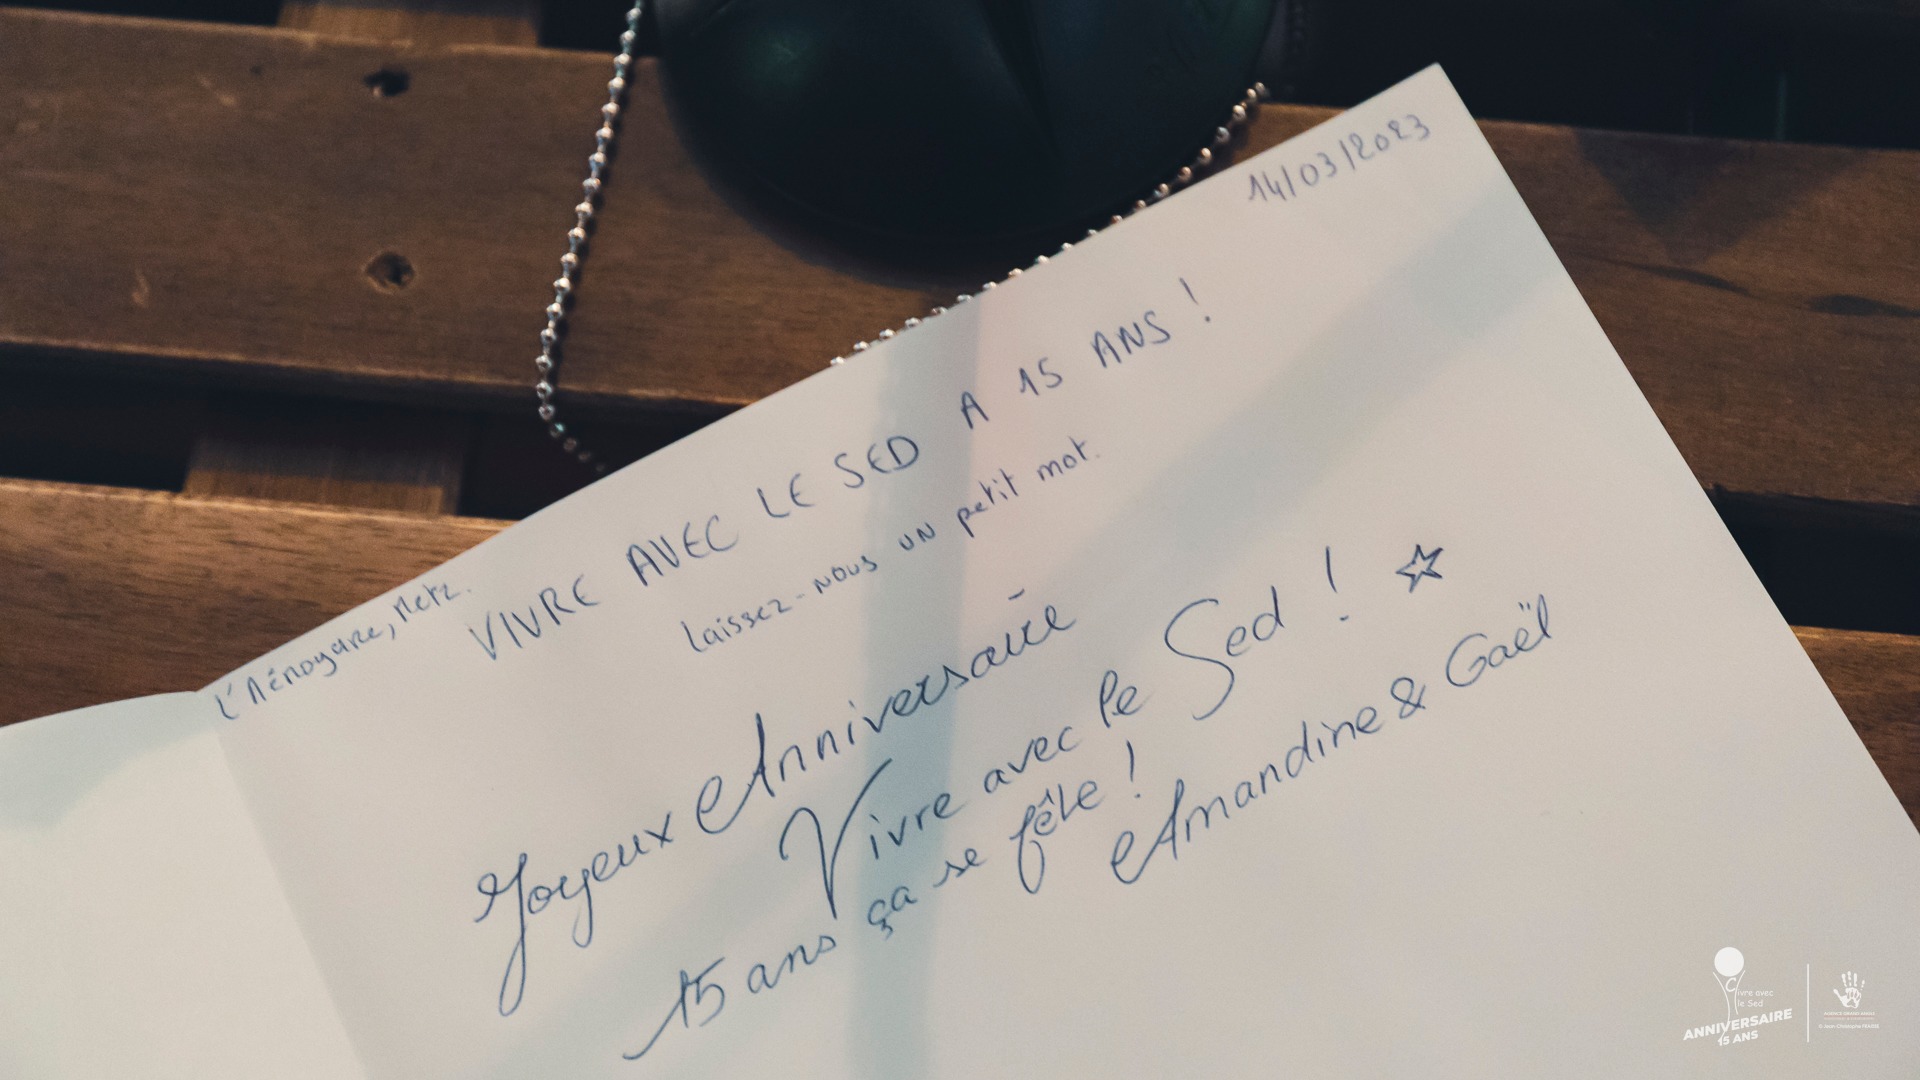 14/03/2023
L'Aénogare, Metz.
VIVRE AVEC LE SED A 15 ANS !
Laissez-nous un petit mot.
Joyeux Anniversaire
Vivre avec le Sed ! ☆
15 ans ça se fête !
Amandine & Gaël
Vivre avec
le Sed
ANNIVERSAIRE
15 ANS